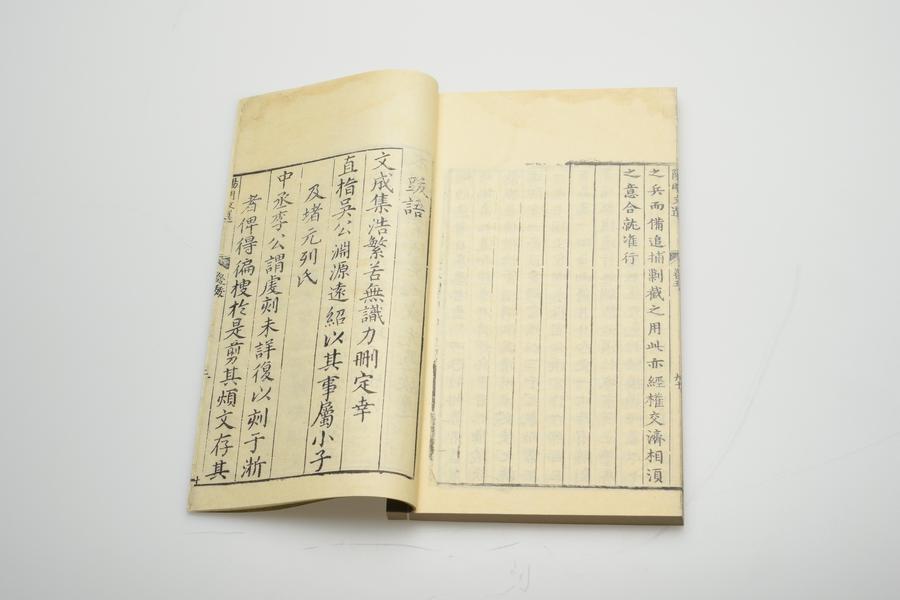 陽明文選
之兵而備追捕剿截之用此亦經權交濟相須
之意合就准行
跋語
文成集浩繁苦無識力刪定幸
直指吳公淵源遠紹以其事屬小子
及堵元列氏
中丞李公謂虔刻未詳復以刻于浙
者俾得徧搜於是剪其煩文存其
陽明文選